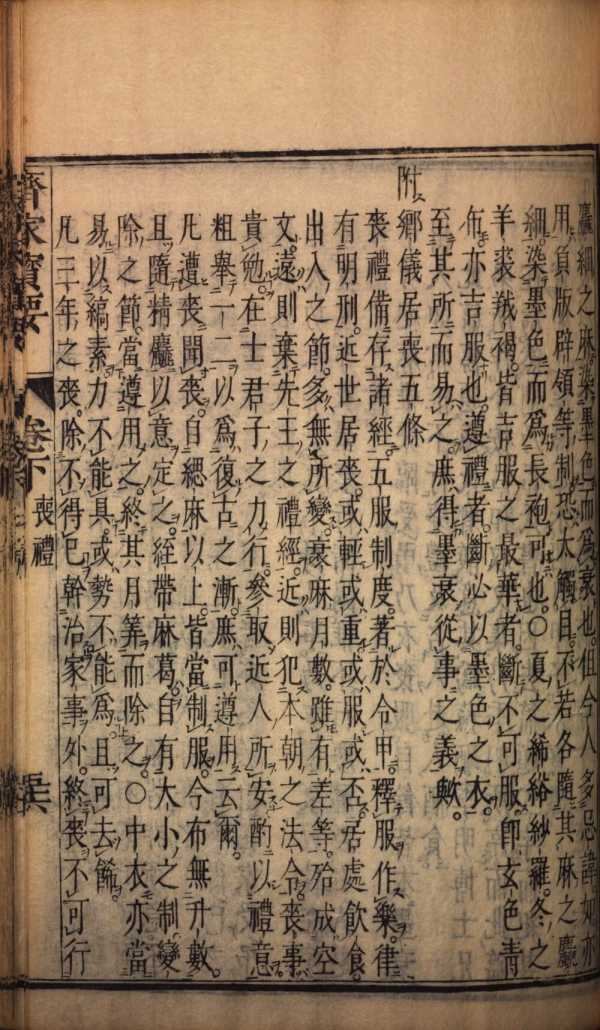 麤細之麻染墨色而爲衰也但今人多忌諱如亦
用負版辟領等制恐太觸目不若各隨其麻之麤
細染墨色而爲長袍可也○夏之絺綌紗羅冬之
羊裘羢褐皆吉服之最華者斷不可服卽玄色青
布亦吉服也遵禮者斷必以墨色之衣
至其所而易之庶得墨衰從事之義歟
附鄉儀居喪五條
喪禮備存諸經五服制度著於令甲釋服作樂律
有明刑近世居喪或輕或重或服或否居處飲食
出入之節多無所變衰麻月數雖有差等殆成空
文遠則棄先王之禮經近則犯本朝之法令喪事
貴勉在士君子之力行參取近人所安酌以禮意
粗舉一二以爲復古之漸庶可遵用云爾
凡遭喪聞喪自緦麻以上皆當制服今布無升數
且隨精麤以意定之絰帶麻葛自有大小之制變
除之節當遵用之終其月筭而除之○中衣亦當
易以縞素力不能具或勢不能爲且可去飾
凡三年之喪除不得已幹治家事外終喪不可行
齊家寶要 卷下 喪禮